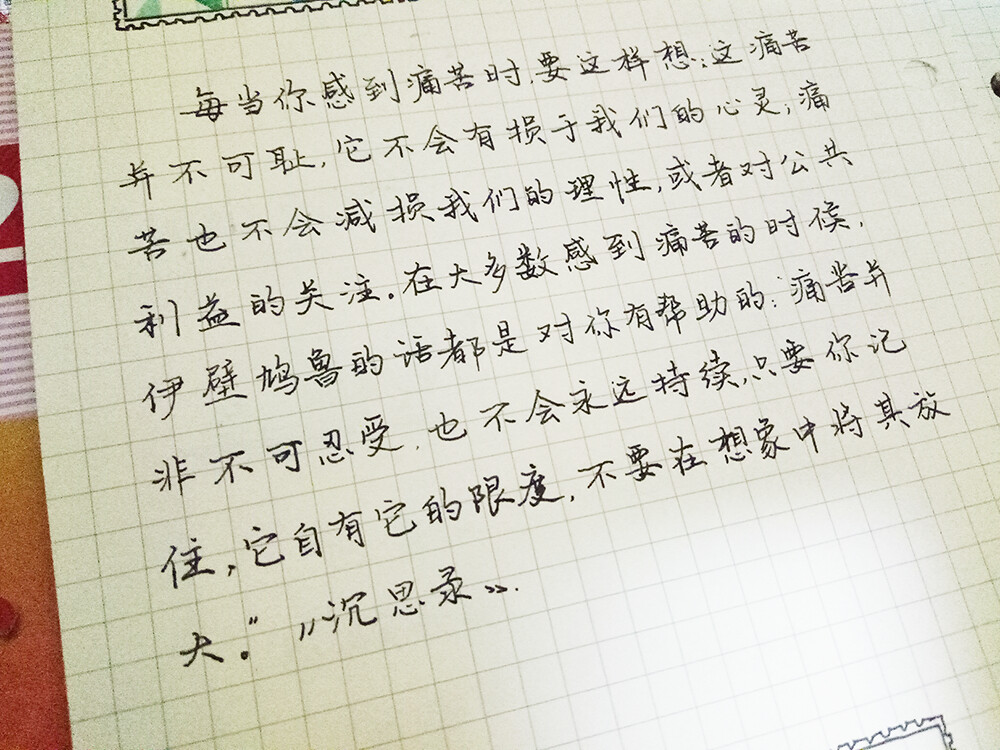 每当你感到痛苦时,要这样想:这痛苦
并不可耻,它不会有损于我们的心灵,痛
苦也不会减损我们的理性,或者对公共
利益的关注。在大多数感到痛苦的时候,
伊壁鸠鲁的话都是对你有帮助的:痛苦并
非不可忍受,也不会永远持续,只要你记
住,它自有它的限度,不要在想象中将其放
大。" 《沉思录》.